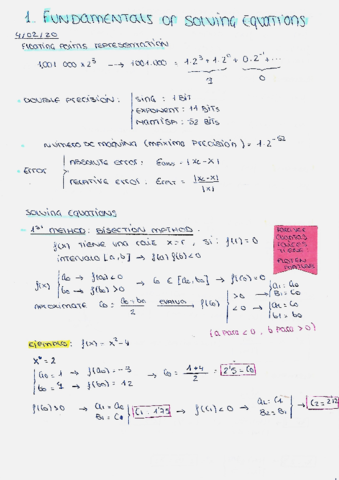 1. FUNDAMENTALS OF SOLVING EQUATIONS
4/02/20
FLOATING POINTS REPRESENTATION
1001.000 x 2⁵ → 1001.000 = 1·2³ + 1·2⁰ + 0·2⁻¹ + ...
9 0
DOUBLE PRECISION: SING: 1 BIT
EXPONENT: 11 BITS
MANTISA: 52 BITS
NUMERO DE MAQUINA (MAXIMA PRECISION) = 1·2⁻⁵²
ERROR ABSOLUTE ERROR: = |xc-x|
RELATIVE ERROR: = |xc-x| / |x|
SOLVING EQUATIONS
1ST METHOD: BISECTION METHOD.
f(x) TIENE UNA RAIZ x=r, si: f(r)=0
INTERVALO [a,b] → f(a)·f(b)<0
f(x) a₀ → f(a₀)<0
b₀ → f(b₀)>0 → C₀ ∈ [a₀,b₀] → f(r)=0
APROXIMATE C₀: a₀+b₀ / 2 EVALUA f(C₀) >0 → a₁=a₀ B₁=C₀
<0 → a₁=C₀ b₁=b₀
(a PARA <0, b PARA >0)
EJEMPLO: f(x) = x²-4
x* = 2
a₀ = 1 → f(a₀) = -3
b₀ = 4 → f(b₀) = 12 → C₀ = 1+4 / 2 = 2'5 = C₀
f(C₀)>0 → a₁=a₀ B₁=C₀ C₁=1'75 → f(C₁)<0 → a₂=C₁ B₂=B₁ → C₂=2'12